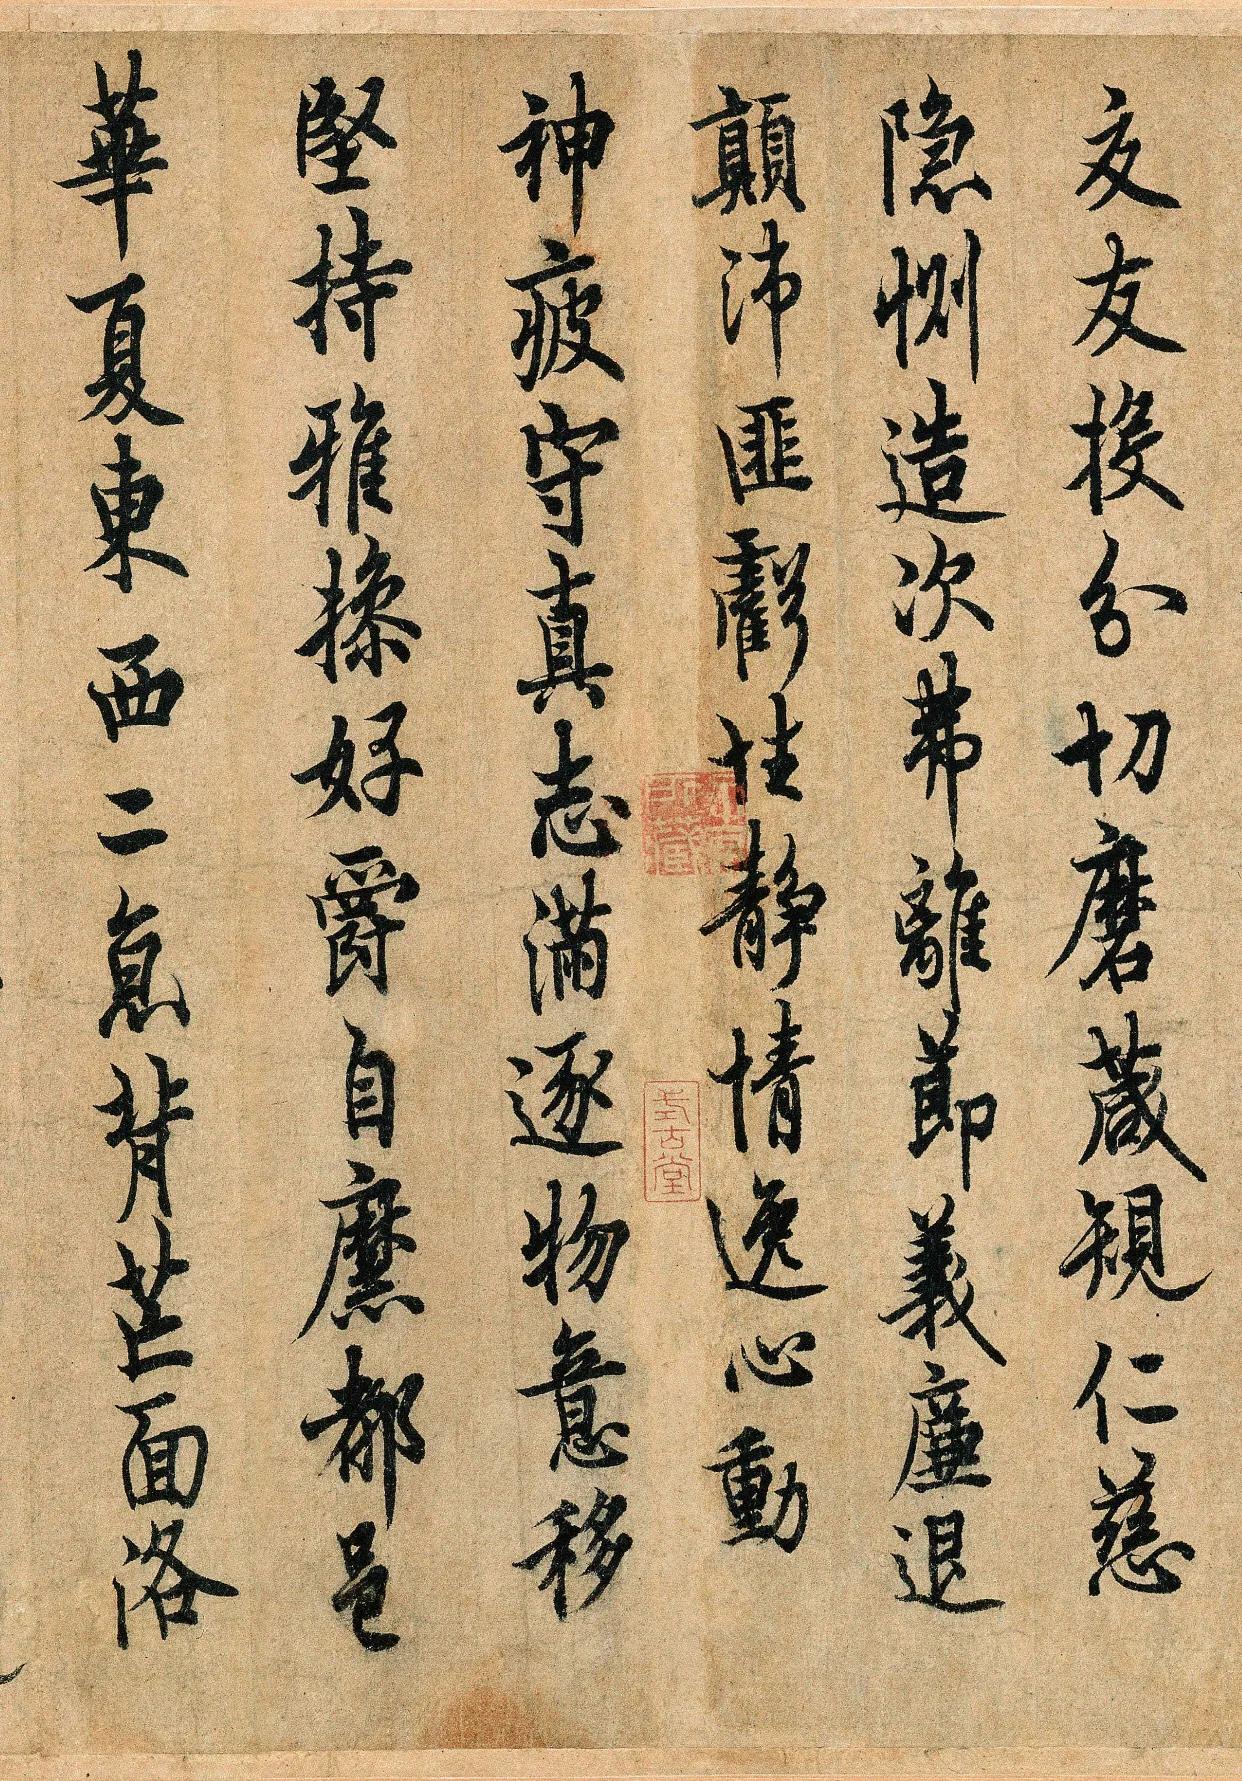 交友投分切磨葴規仁慈
隱惻造次弗離節義廉退
顛沛匪虧性靜情逸心動
神疲守真志滿逐物意移
堅持雅操好爵自縻都邑
華夏東西二京背芒面洛
式古堂